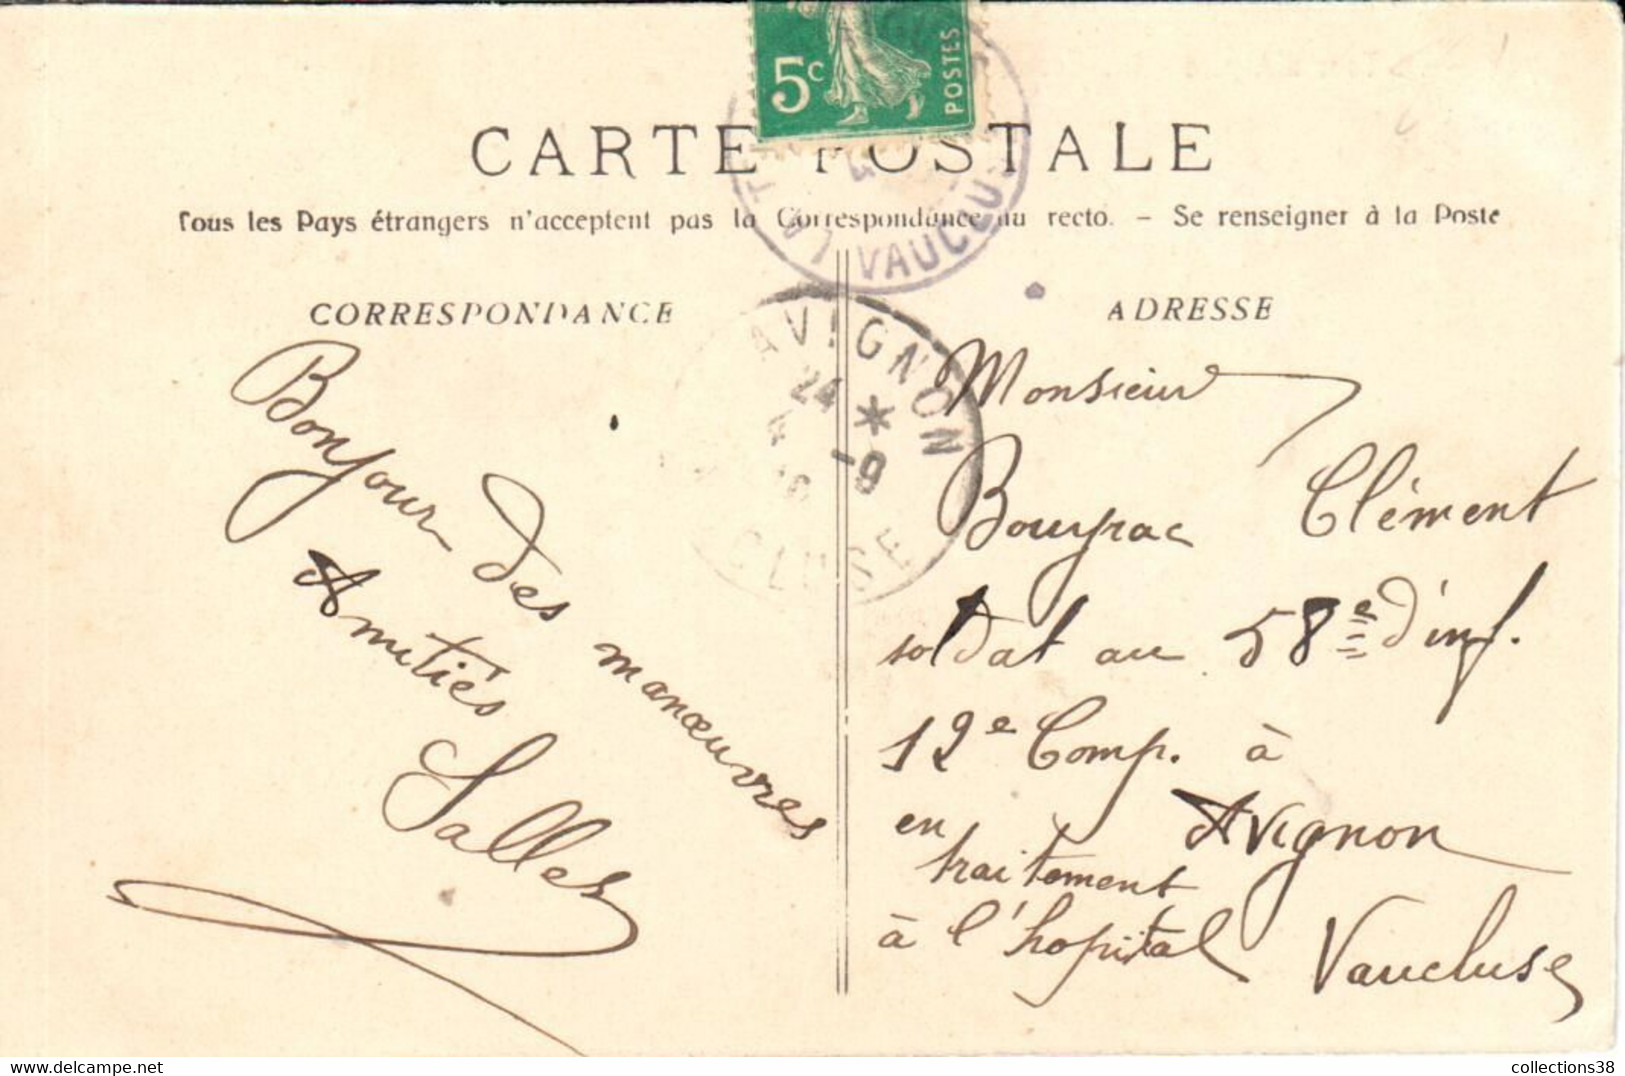 5c
POSTES
CARTE POSTALE
Tous les Pays étrangers n'acceptent pas la Correspondance au recto. - Se renseigner à la Poste
VAUCLUSE
CORRESPONDANCE
ADRESSE
AVIGNON
24 *
-9
Bonjour des manœuvres
Amitiés
Salles
Monsieur
Bouyrac Clément
soldat au 58e d'inf.
12e Comp. à
Avignon
en
traitement
à l'hopital
Vaucluse
collections38